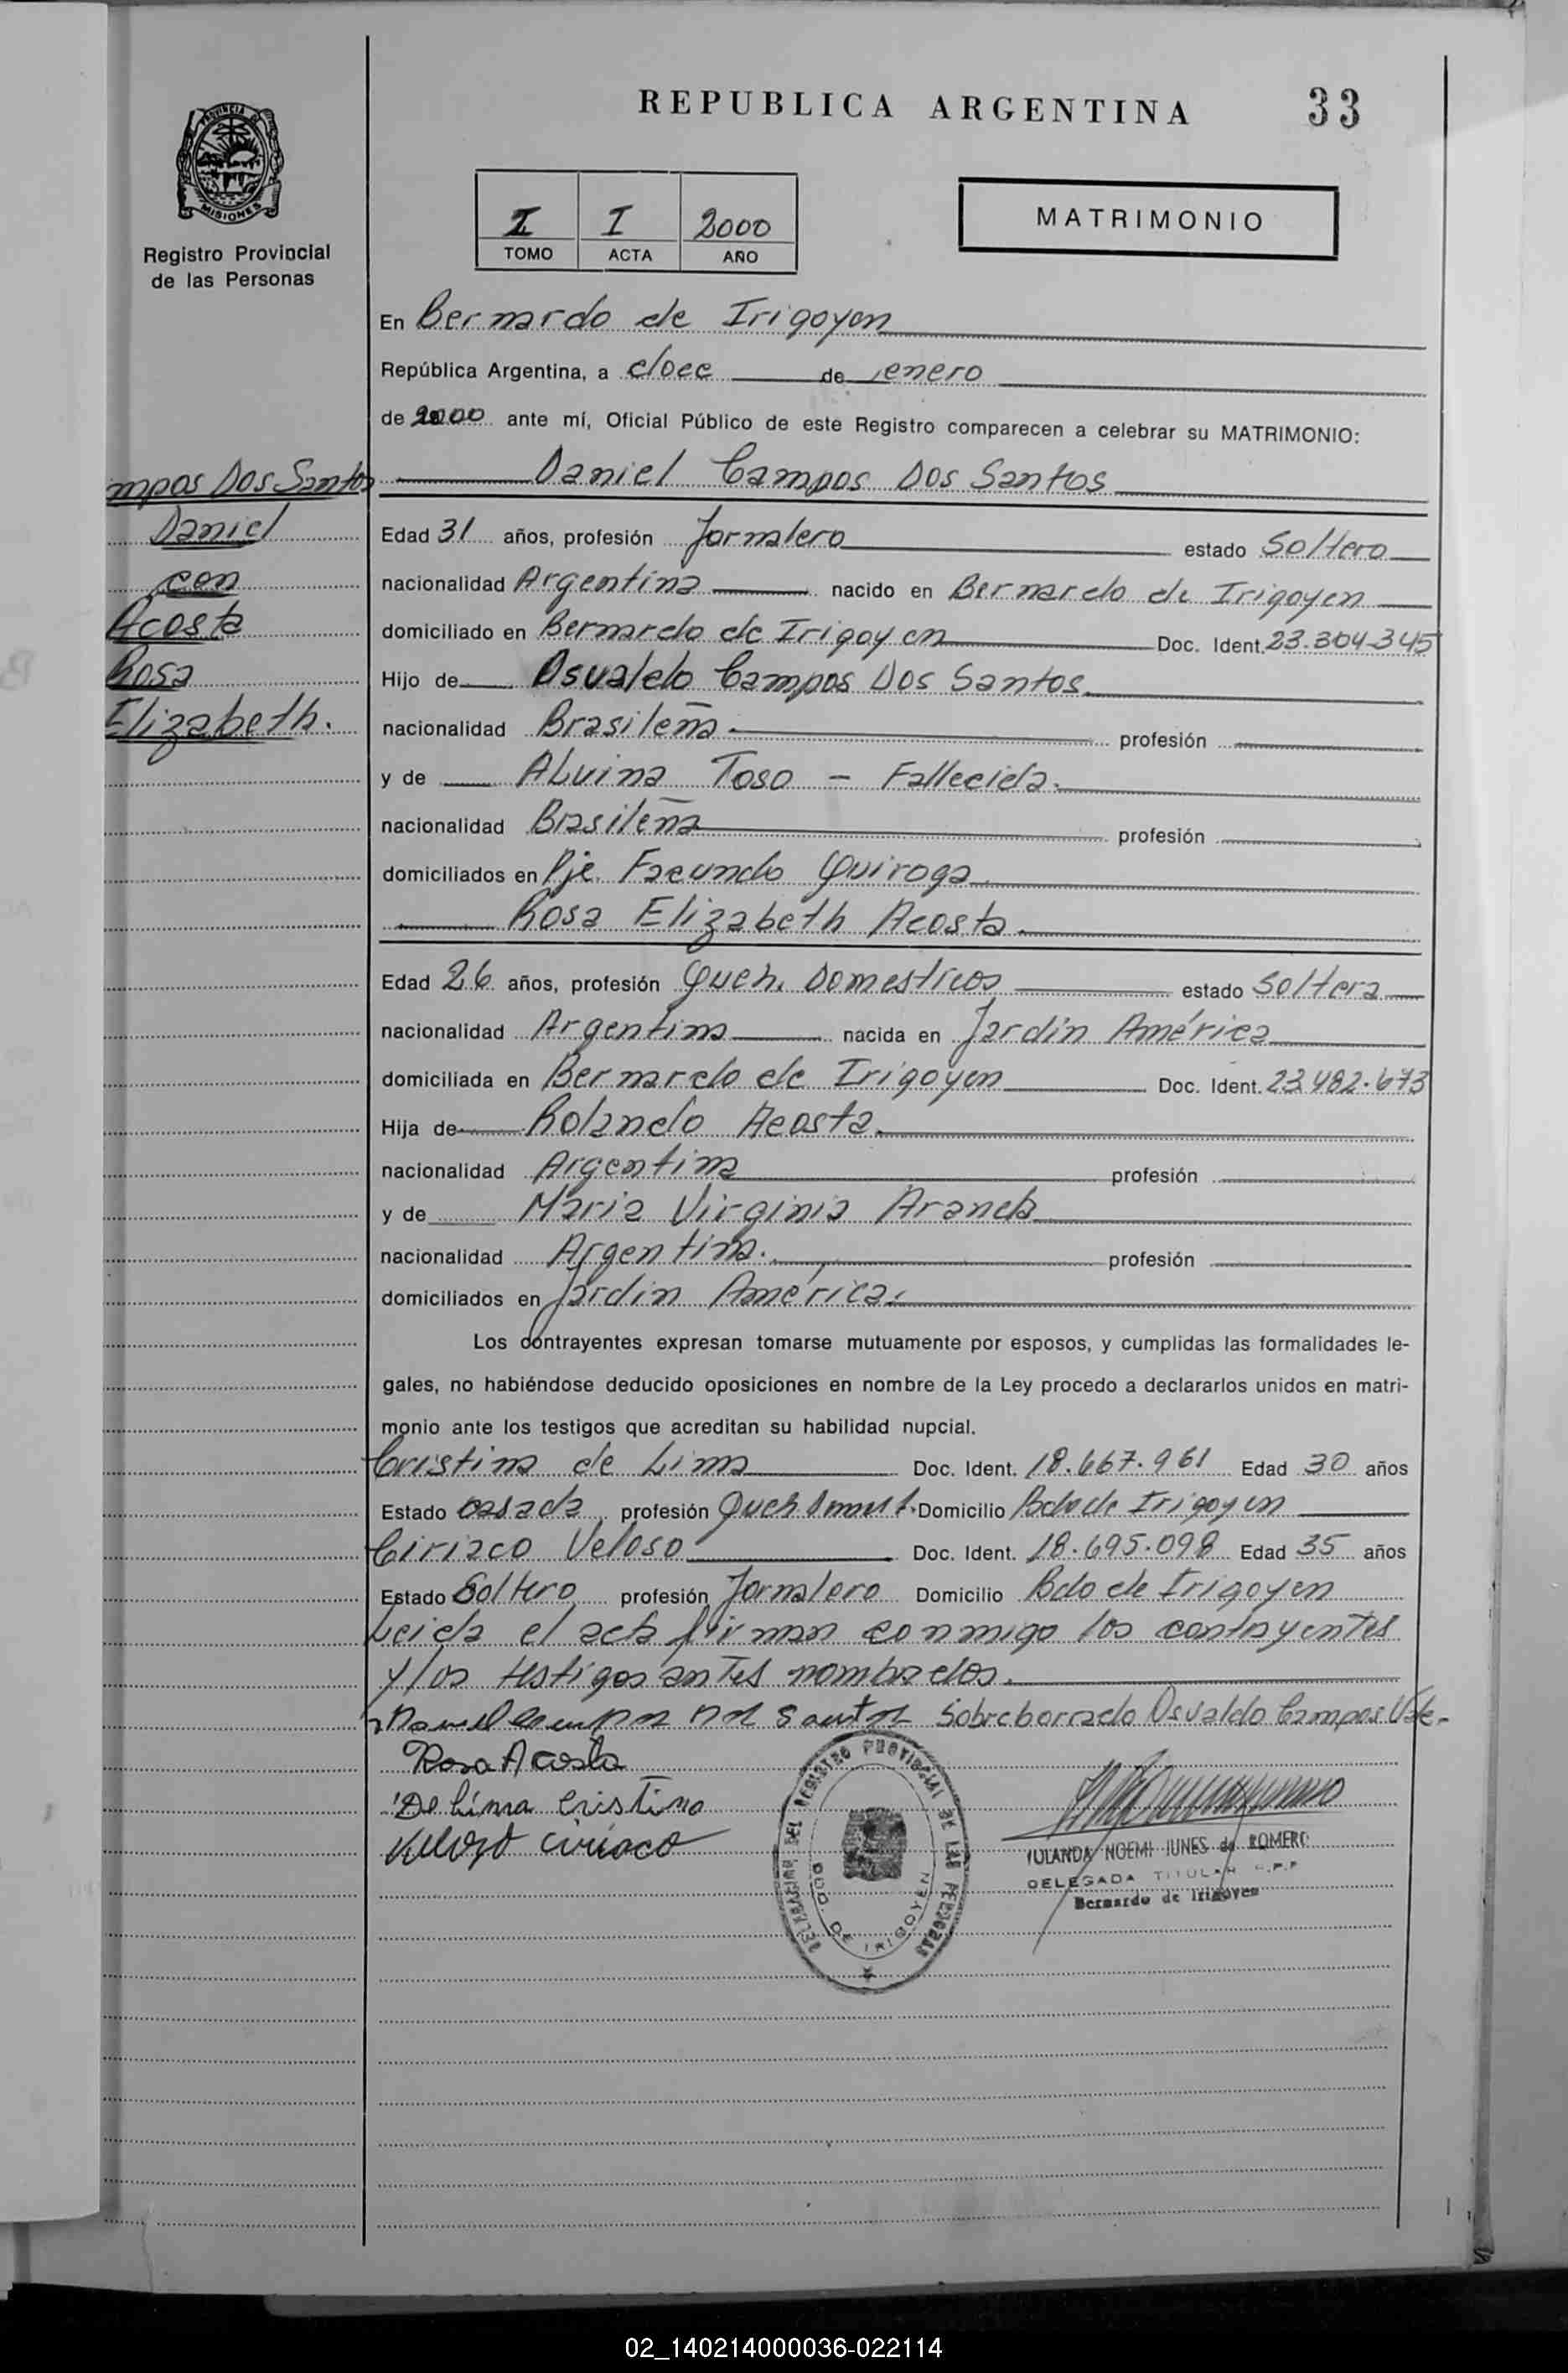 REPUBLICA ARGENTINA
33
PROVINCIA DE
MISIONES
Registro Provincial
de las Personas
I I 2000
TOMO ACTA AÑO
MATRIMONIO
En Bernardo de Irigoyen
República Argentina, a doce de enero
de 2000 ante mí, Oficial Público de este Registro comparecen a celebrar su MATRIMONIO:
mpos Dos Santos
Daniel
con
Acosta
Rosa
Elizabeth.
Daniel Campos Dos Santos
Edad 31 años, profesión Jornalero estado Soltero
nacionalidad Argentina nacido en Bernardo de Irigoyen
domiciliado en Bernardo de Irigoyen Doc. Ident. 23.304.345
Hijo de Osvaldo Campos Dos Santos
nacionalidad Brasileña profesión
y de ALvina Toso - Fallecida.
nacionalidad Brasileña profesión
domiciliados en Pje. Facundo Quiroga
Rosa Elizabeth Acosta.
Edad 26 años, profesión Queh. Domesticos estado Soltera
nacionalidad Argentina nacida en Jardín América
domiciliada en Bernardo de Irigoyen Doc. Ident. 23.482.673
Hija de Rolando Acosta.
nacionalidad Argentina profesión
y de Maria Virginia Aranda
nacionalidad Argentina. profesión
domiciliados en Jardin América.
Los contrayentes expresan tomarse mutuamente por esposos, y cumplidas las formalidades le-
gales, no habiéndose deducido oposiciones en nombre de la Ley procedo a declararlos unidos en matri-
monio ante los testigos que acreditan su habilidad nupcial.
Cristina de Lima Doc. Ident. 18.667.961 Edad 30 años
Estado casada profesión Queh. Domicilio Bdo de Irigoyen
Ciriaco Veloso Doc. Ident. 18.695.098 Edad 35 años
Estado Soltero profesión Jornalero Domicilio Bdo de Irigoyen
Leida el acta firman conmigo los contayentes
y los testigos antes nombrados.
Daniel campos Dos Santos Sobreborrado Osvaldo Campos Vale-
Rosa Acosta
De Lima Cristina
Velozo Ciriaco
DELEGACION DEL REGISTRO PROVINCIAL DE LAS PERSONAS
BDO. DE IRIGOYEN
YOLANDA NOEMI JUNES de ROMERO
DELEGADA TITULAR R.P.P
Bernardo de Irigoyen
02_140214000036-022114